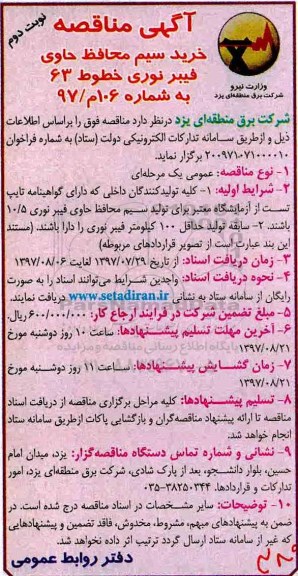 نوبت دوم
آگهی مناقصه
خرید سیم محافظ حاوی
فیبر نوری خطوط ۶۳
به شماره ۱۰۶م/۹۷
وزارت نیرو
شرکت برق منطقه‌ای یزد
شرکت برق منطقه‌ای یزد درنظر دارد مناقصه فوق را براساس اطلاعات
ذیل و ازطریق سامانه تدارکات الکترونیکی دولت (ستاد) به شماره فراخوان
۲۰۰۹۷۱۰۷۱۰۰۰۰۱۰ برگزار نماید.
۱- نوع مناقصه: عمومی یک مرحله‌ای
۲- شرایط اولیه: ۱- کلیه تولیدکنندگان داخلی که دارای گواهینامه تایپ
تست از آزمایشگاه معتبر برای تولید سیم محافظ حاوی فیبر نوری ۱۰/۵
باشند. ۲- سابقه تولید حداقل ۱۰۰ کیلومتر فیبر نوری را دارا باشند. (مستند
این بند عبارت است از تصویر قراردادهای مربوطه)
۳- زمان دریافت اسناد: از تاریخ ۱۳۹۷/۰۷/۲۹ لغایت ۱۳۹۷/۰۸/۰۶
۴- نحوه دریافت اسناد: واجدین شرایط می‌توانند اسناد را به صورت
رایگان از سامانه ستاد به نشانی www.setadiran.ir دریافت نمایند.
۵- مبلغ تضمین شرکت در فرایند ارجاع کار: ۶۰۰/۰۰۰/۰۰۰ ریال.
۶- آخرین مهلت تسلیم پیشنهادها: ساعت ۱۰ روز دوشنبه مورخ
۱۳۹۷/۰۸/۲۱
۷- زمان گشایش پیشنهادها: ساعت ۱۱ روز دوشنبه مورخ
۱۳۹۷/۰۸/۲۱
۸- تسلیم پیشنهادها: کلیه مراحل برگزاری مناقصه از دریافت اسناد
مناقصه تا ارائه پیشنهاد مناقصه‌گران و بازگشایی پاکات ازطریق سامانه ستاد
انجام خواهد شد.
۹- نشانی و شماره تماس دستگاه مناقصه‌گزار: یزد، میدان امام
حسین، بلوار دانشجو، بعد از پارک شادی، شرکت برق منطقه‌ای یزد، امور
تدارکات و قراردادها. ۳۸۲۵۰۳۴۴-۰۳۵
۱۰- توضیحات: سایر مشخصات در اسناد مناقصه درج شده است. در
ضمن به پیشنهادهای مبهم، مشروط، مخدوش، فاقد تضمین و پیشنهادهایی
که غیر از سامانه ستاد ارسال گردد ترتیب اثر داده نخواهد شد.
دفتر روابط عمومی